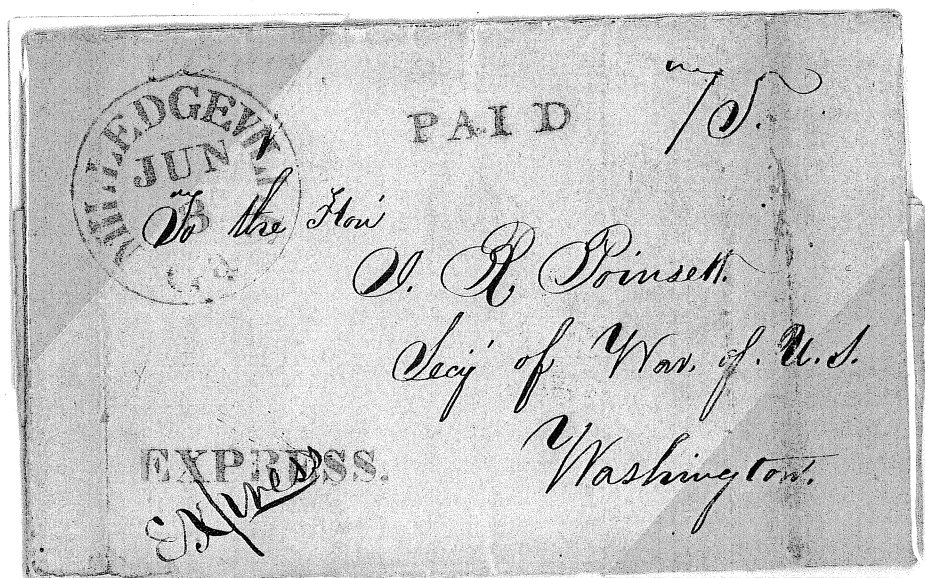 MILLEDGEVILLE
JUN
8
Ga
PAID
75.
To the Hon'
J. R. Poinsett.
Secy' of War. of. U. S.
Washington.
EXPRESS.
Express